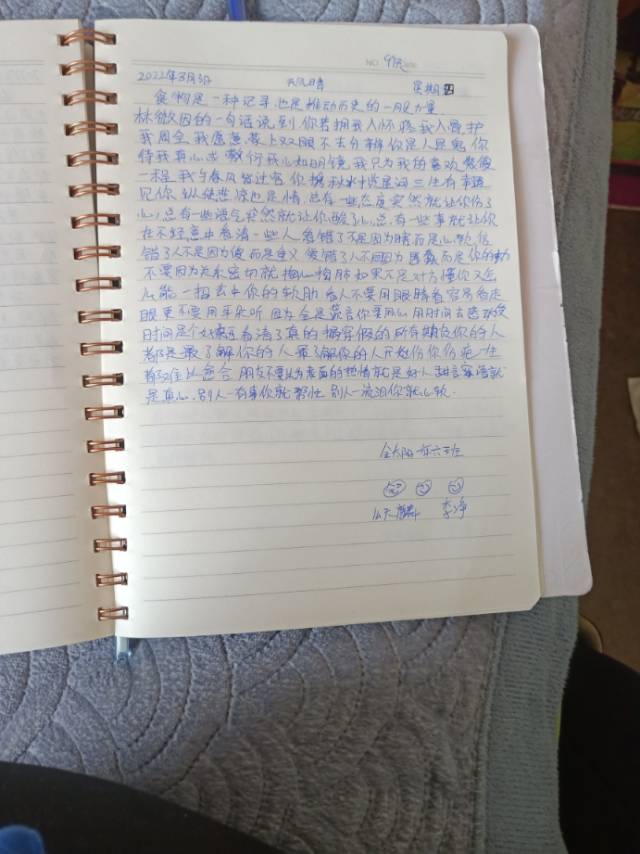 NO. 91天
2022年3月3日 天气晴 星期四
食物是一种记录也是推动历史的一股力量
林微因的一句话说到你若拥我入怀疼我入骨护
我周全我愿意蒙上双眼不去分辨你是人是鬼你
待我真心或敷衍我心如明镜我只为我的喜欢装傻
一程我与春风皆过客你携秋水揽星河三生有幸遇
见你纵使悲凉也是情总有一些态度突然就让你伤了
心总有一些语气突然就让你酸了心总有一些事就让你
在不轻意中看清一些人看错了不是因为瞎而是心软信
错了人不是因为傻而是重义爱错了人不是因为愚蠢而是你的
不要因为关系密切就掏心掏肺如果不是对方懂你又怎
么能一招去中你的软肋看人不要用眼睛看容易看走
眼更不要用耳朵听因为全是谎言你要用心用时间去感受
时间是个好东西看清了真的揭穿假的所有辜负你的人
都是最了解你的人最了解你的人开始伤你伤疤一生
都难以愈合朋友不要认为表面的热情就是好人甜言蜜语就
是真心别人一有事你就帮忙别人一流泪你就心软
金太阳一年六班
李净